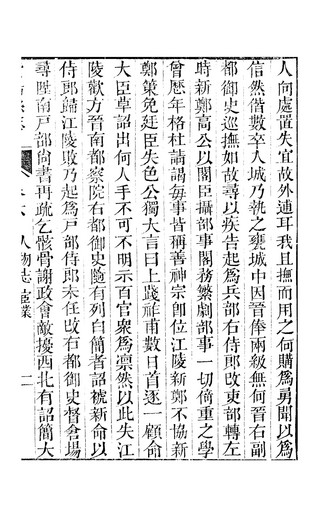 人向處置失宜故外通耳我且撫而用之何購爲勇聞以爲
信然偕數卒入城乃執之甕城中因晉俸兩級無何晉右副
都御史巡撫如故尋以疾告起爲兵部右侍郎改吏部轉左
時新鄭高公以閣臣攝部事閣務繁劇部事一切倚重之學
曾歷年格杜請謁每事皆稱善神宗卽位江陵新鄭不協新
鄭策免廷臣失色公獨大言曰上踐祚甫數日首逐一顧命
大臣草詔出何人手不可不明示百官衆爲凛然以此失江
陵歡方晉南都察院右都御史隨有列白簡者詔褫新命以
侍郎歸江陵敗乃起爲戶部侍郎未任改右都御史督倉場
尋陞南戶部尚書再疏乞骸骨謝政會敵擾西北有詔簡大
人物志 宦業